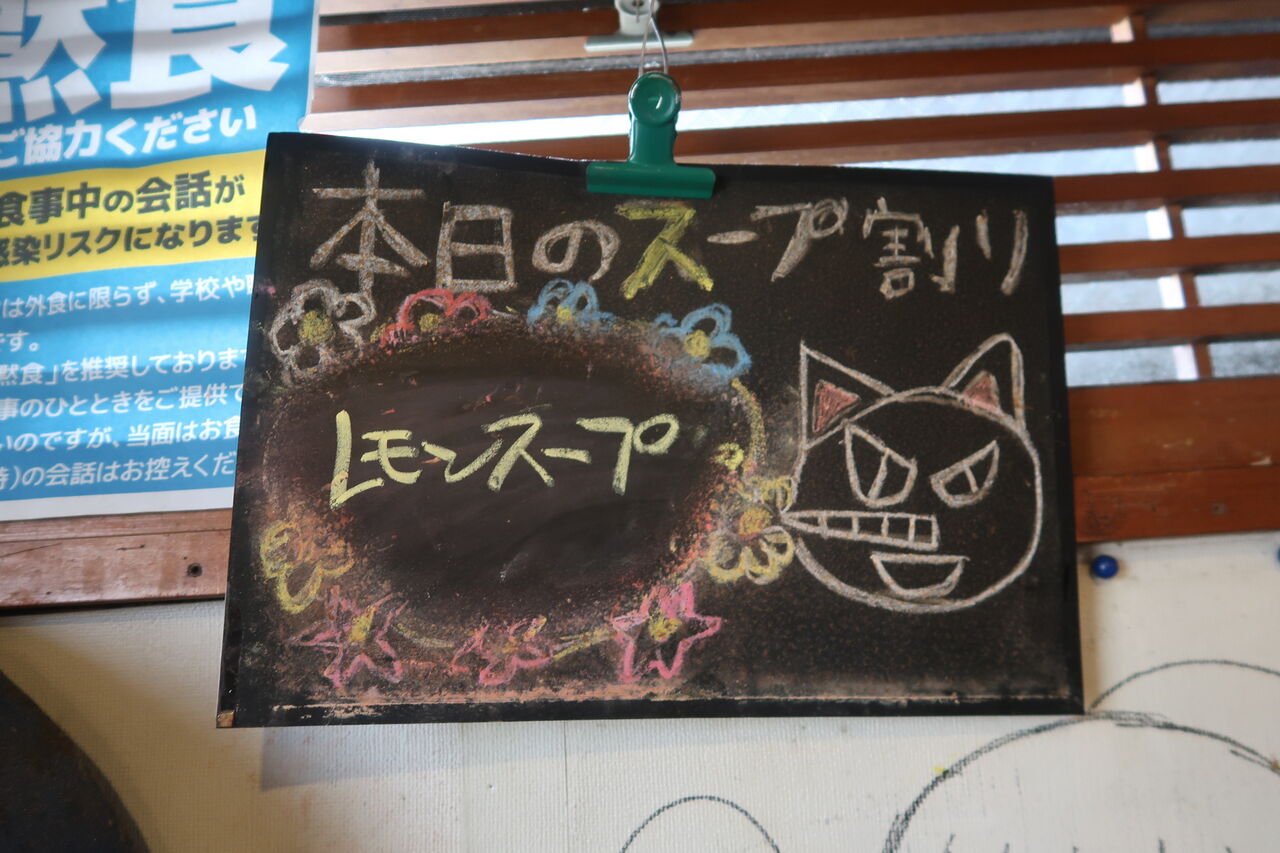 黙食
ご協力ください
食事中の会話が
感染リスクになります
は外食に限らず、学校や
です。
黙食」を推奨しておりま
事のひとときをご提供
いのですが、当面はお食
の会話はお控えくだ
本日のスープ割り
レモンスープ